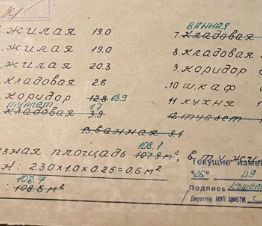 жилая 19.0
жилая 19.0
жилая 20.3
кладовая 2.6
коридор 12.8 13.9
туалет 1.9
кладовая 3.9
ванная
7. кладовая
8. кладовая
9. коридор
10. шкаф
11 кухня
12 туалет
13 ванная 3.1
зная площадь 107.9 м², в т.ч. жил
108.7
н: 2.30х1.0х0.25=0.6 м²
108.7
: 108.5 м²
Текущие измен
"26" 09
Подпись
Директор МУП ЦМБТИ